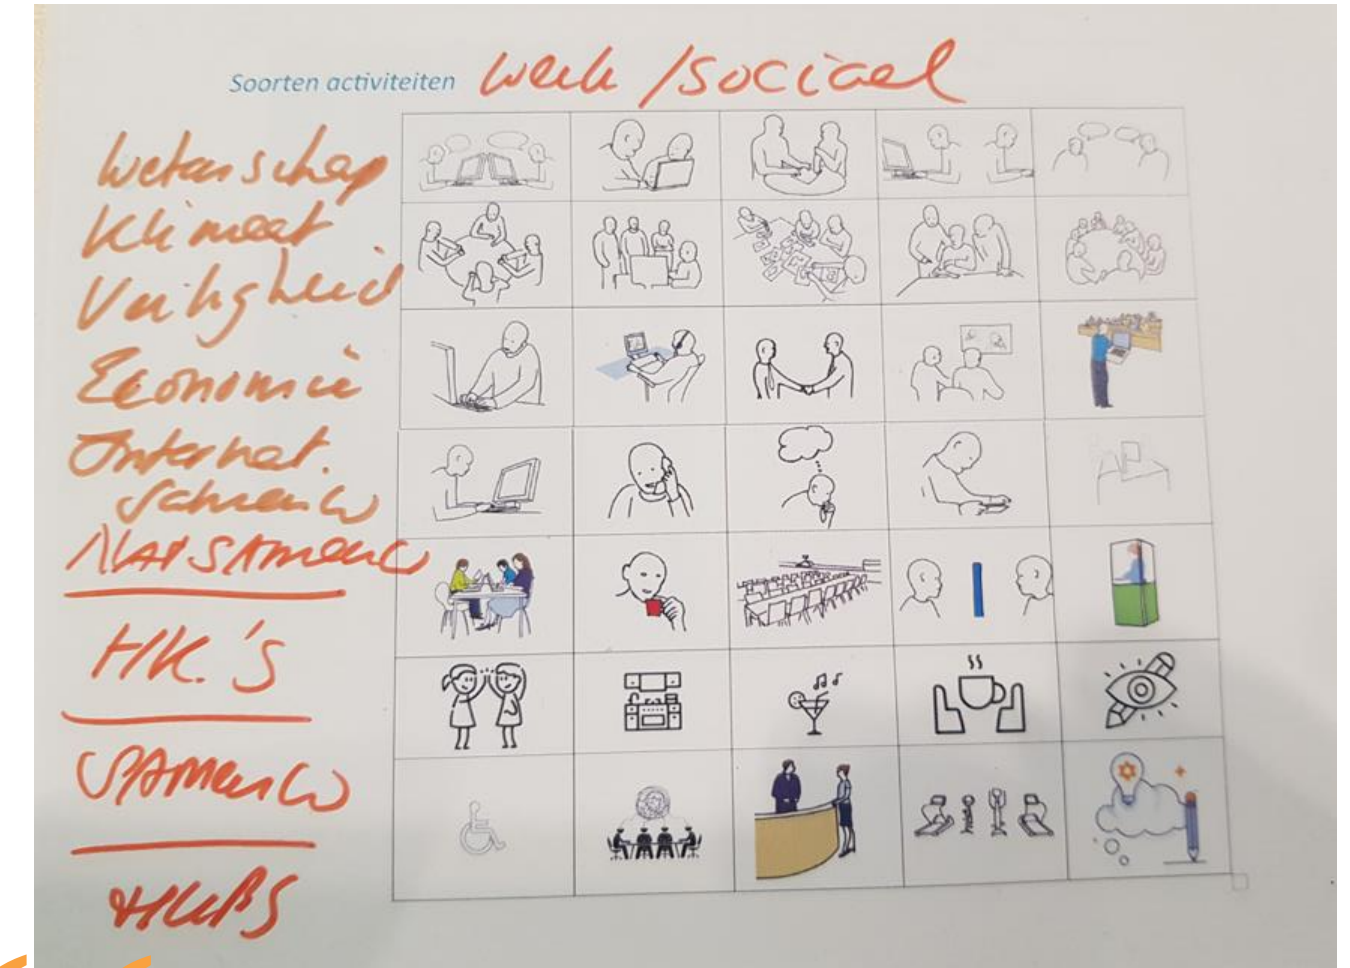 Soorten activiteiten werk / sociael
wetenschap
Klimaat
Veiligheid
Economie
Internat.
Samenw
NAT SAmenw
HK.'S
SAmenw
HUBS